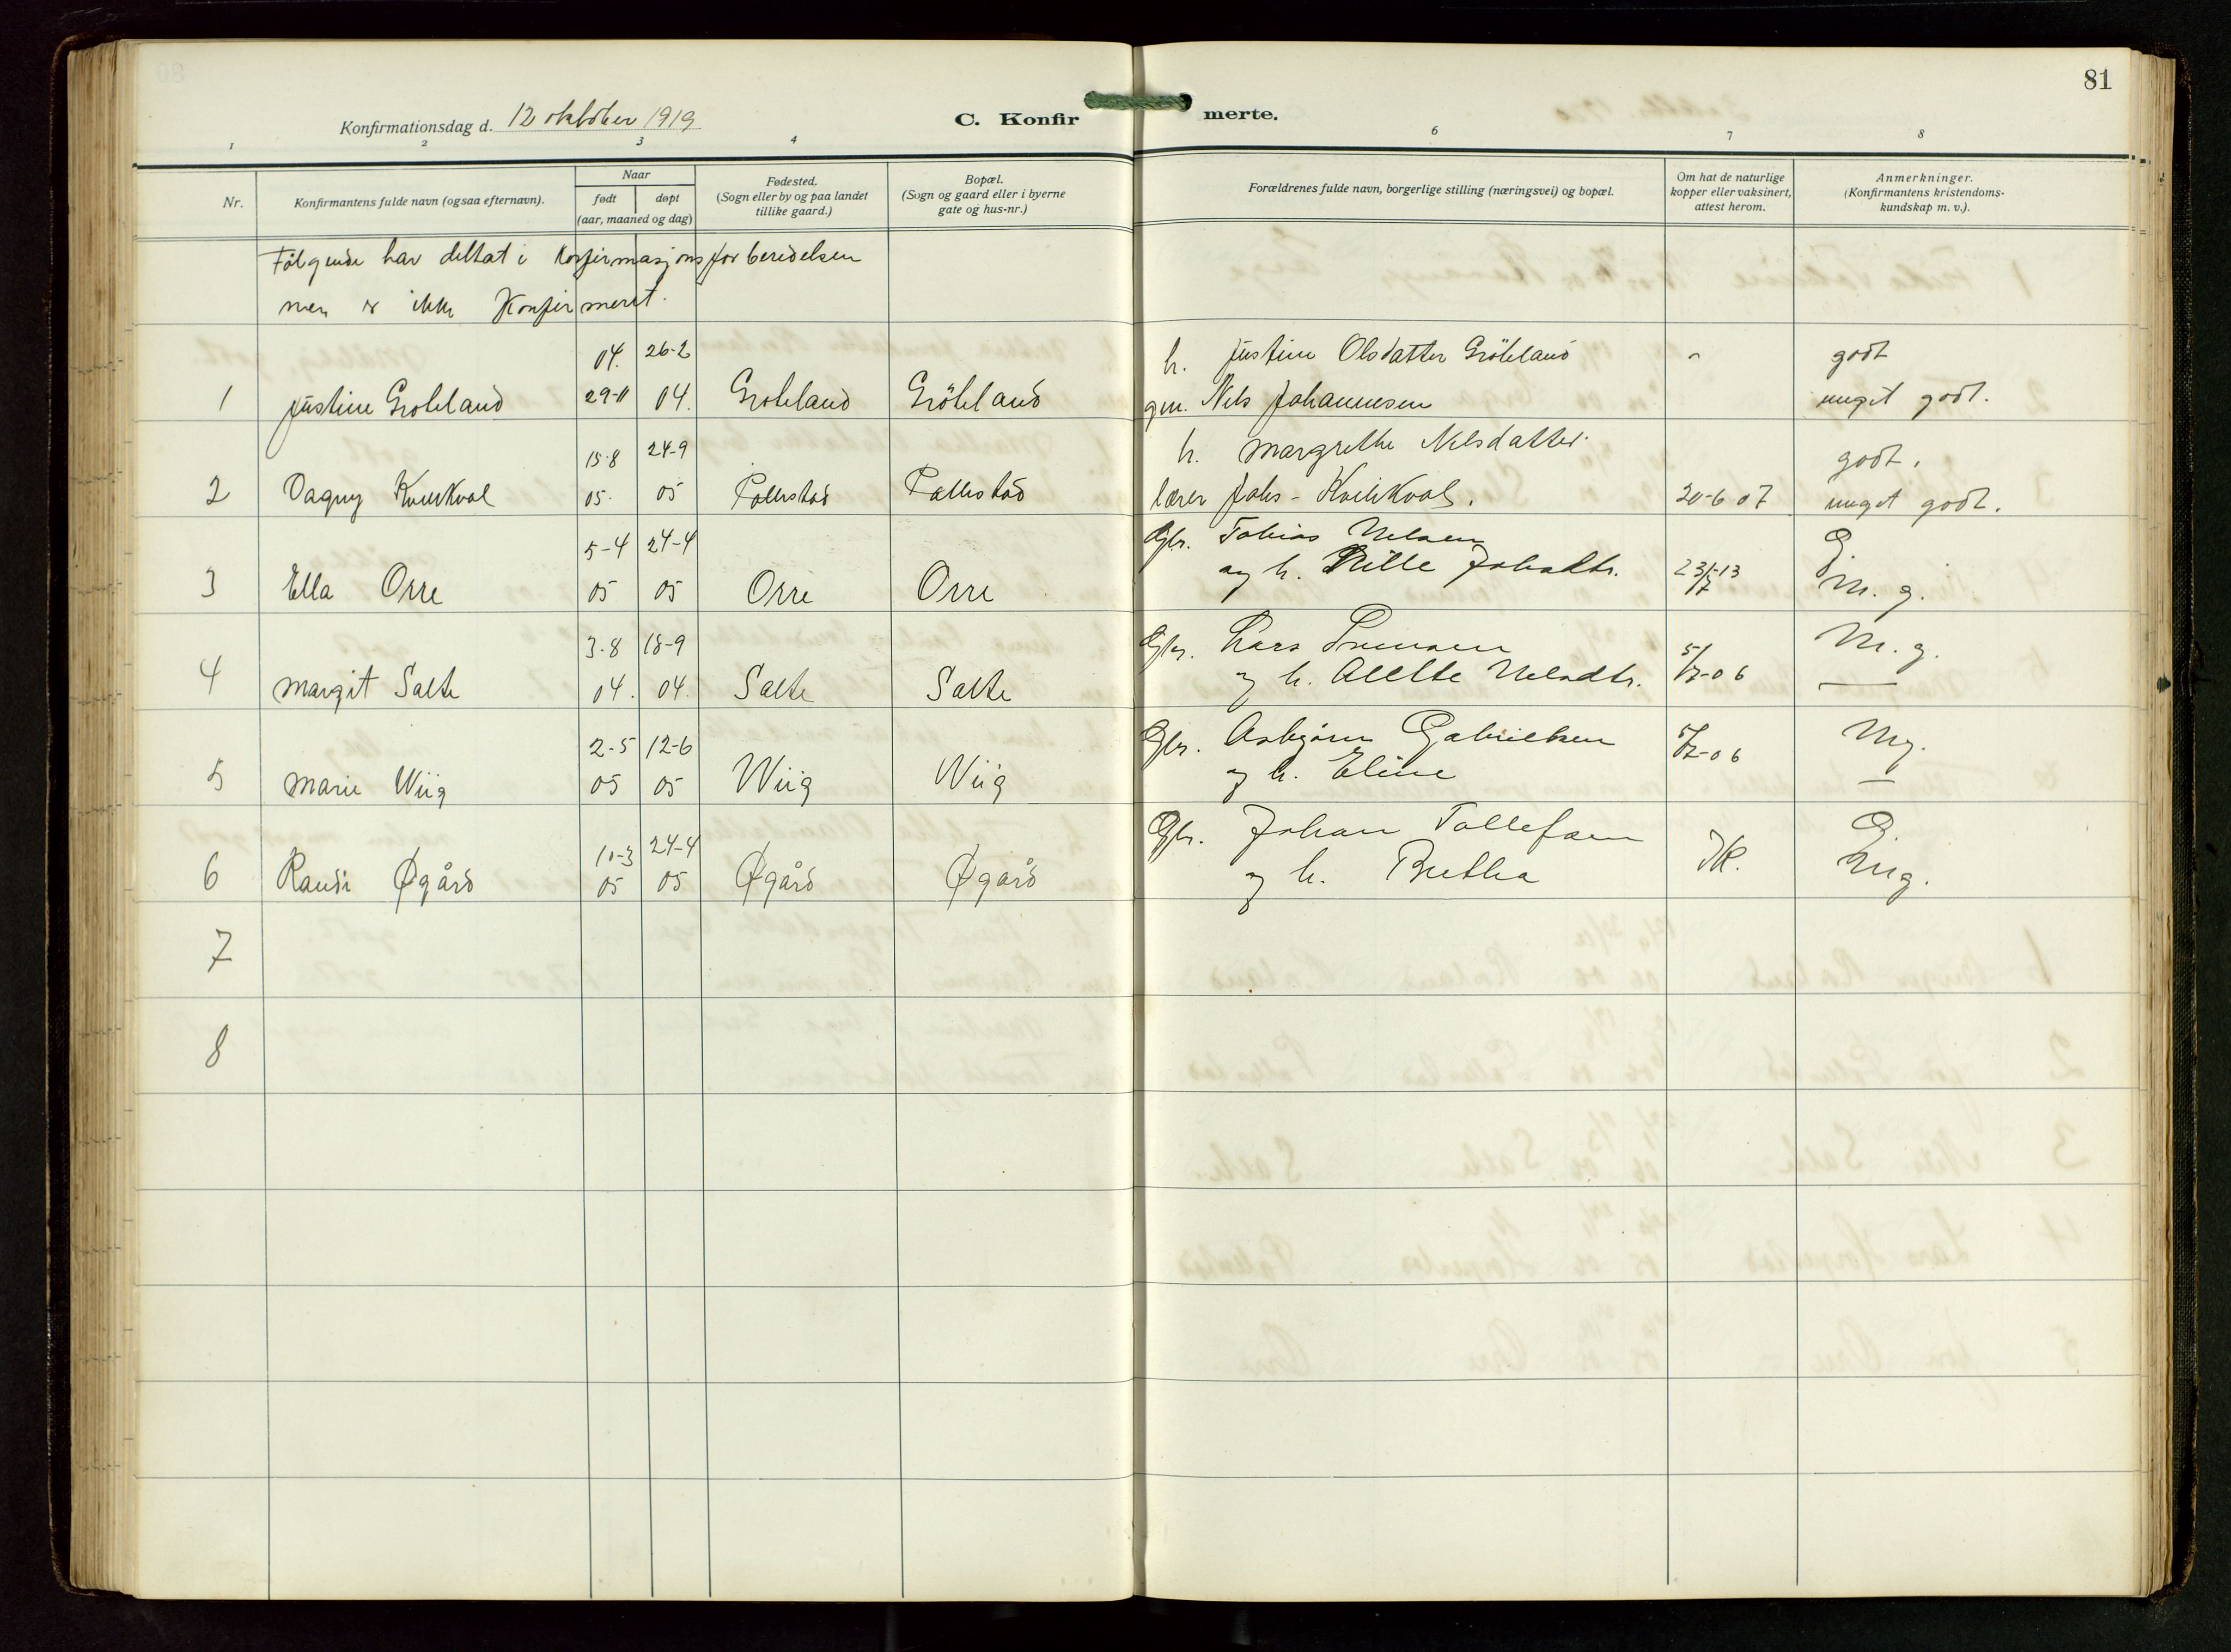 81
Konfirmationsdag d. 12 oktober 1919
C. Konfir merte.
1 2 3 4 6 7 8
Nr.
Konfirmantens fulde navn (ogsaa efternavn).
Naar
født døpt
(aar, maaned og dag)
Fødested.
(Sogn eller by og paa landet
tillike gaard.)
Bopæl.
(Sogn og gaard eller i byerne
gate og hus-nr.)
Forældrenes fulde navn, borgerlige stilling (næringsvei) og bopæl.
Om hat de naturlige
kopper eller vaksinert,
attest herom.
Anmerkninger.
(Konfirmantens kristendoms-
kundskap m. v.).
Følgende har deltat i Konfirmasjonsforberedelsen
men er ikke Konfirmert.
04. 26-2 h. Justine Olsdatter Gröteland godt
1 Justine Groteland 29-11 04. Groteland Gröteland gm. Nels Johannesen meget godt.
15-8 24-9 h. Margrethe Nelsdatter godt.
2 Dagny Kverkvol 05. 05 Pollestad Pollestad lærer Johs - 20-6 07 meget godt.
5-4 24-4 Gbr. Tobias Nelsen G.
3 Ella Orre 05 05 Orre Orre og h. 23/7-13 M. g.
3-8 18-9 Gbr. Lars M. g.
4 Margit Salte 04. 04. Salte Salte og h. Alette Nelsdtr. 5/7-06 —
2-5 12-6 Gbr. Asbjørn Gabrielsen Mg.
5 Marie Wiig 05 05 Wiig Wiig og h. Eline 5/7-06 —
10-3 24-4 Gbr. Johan Tollefsen G.
6 Randi Øgård 05 05 Øgård Øgård og h. Bertha IK. Mg.
7
8